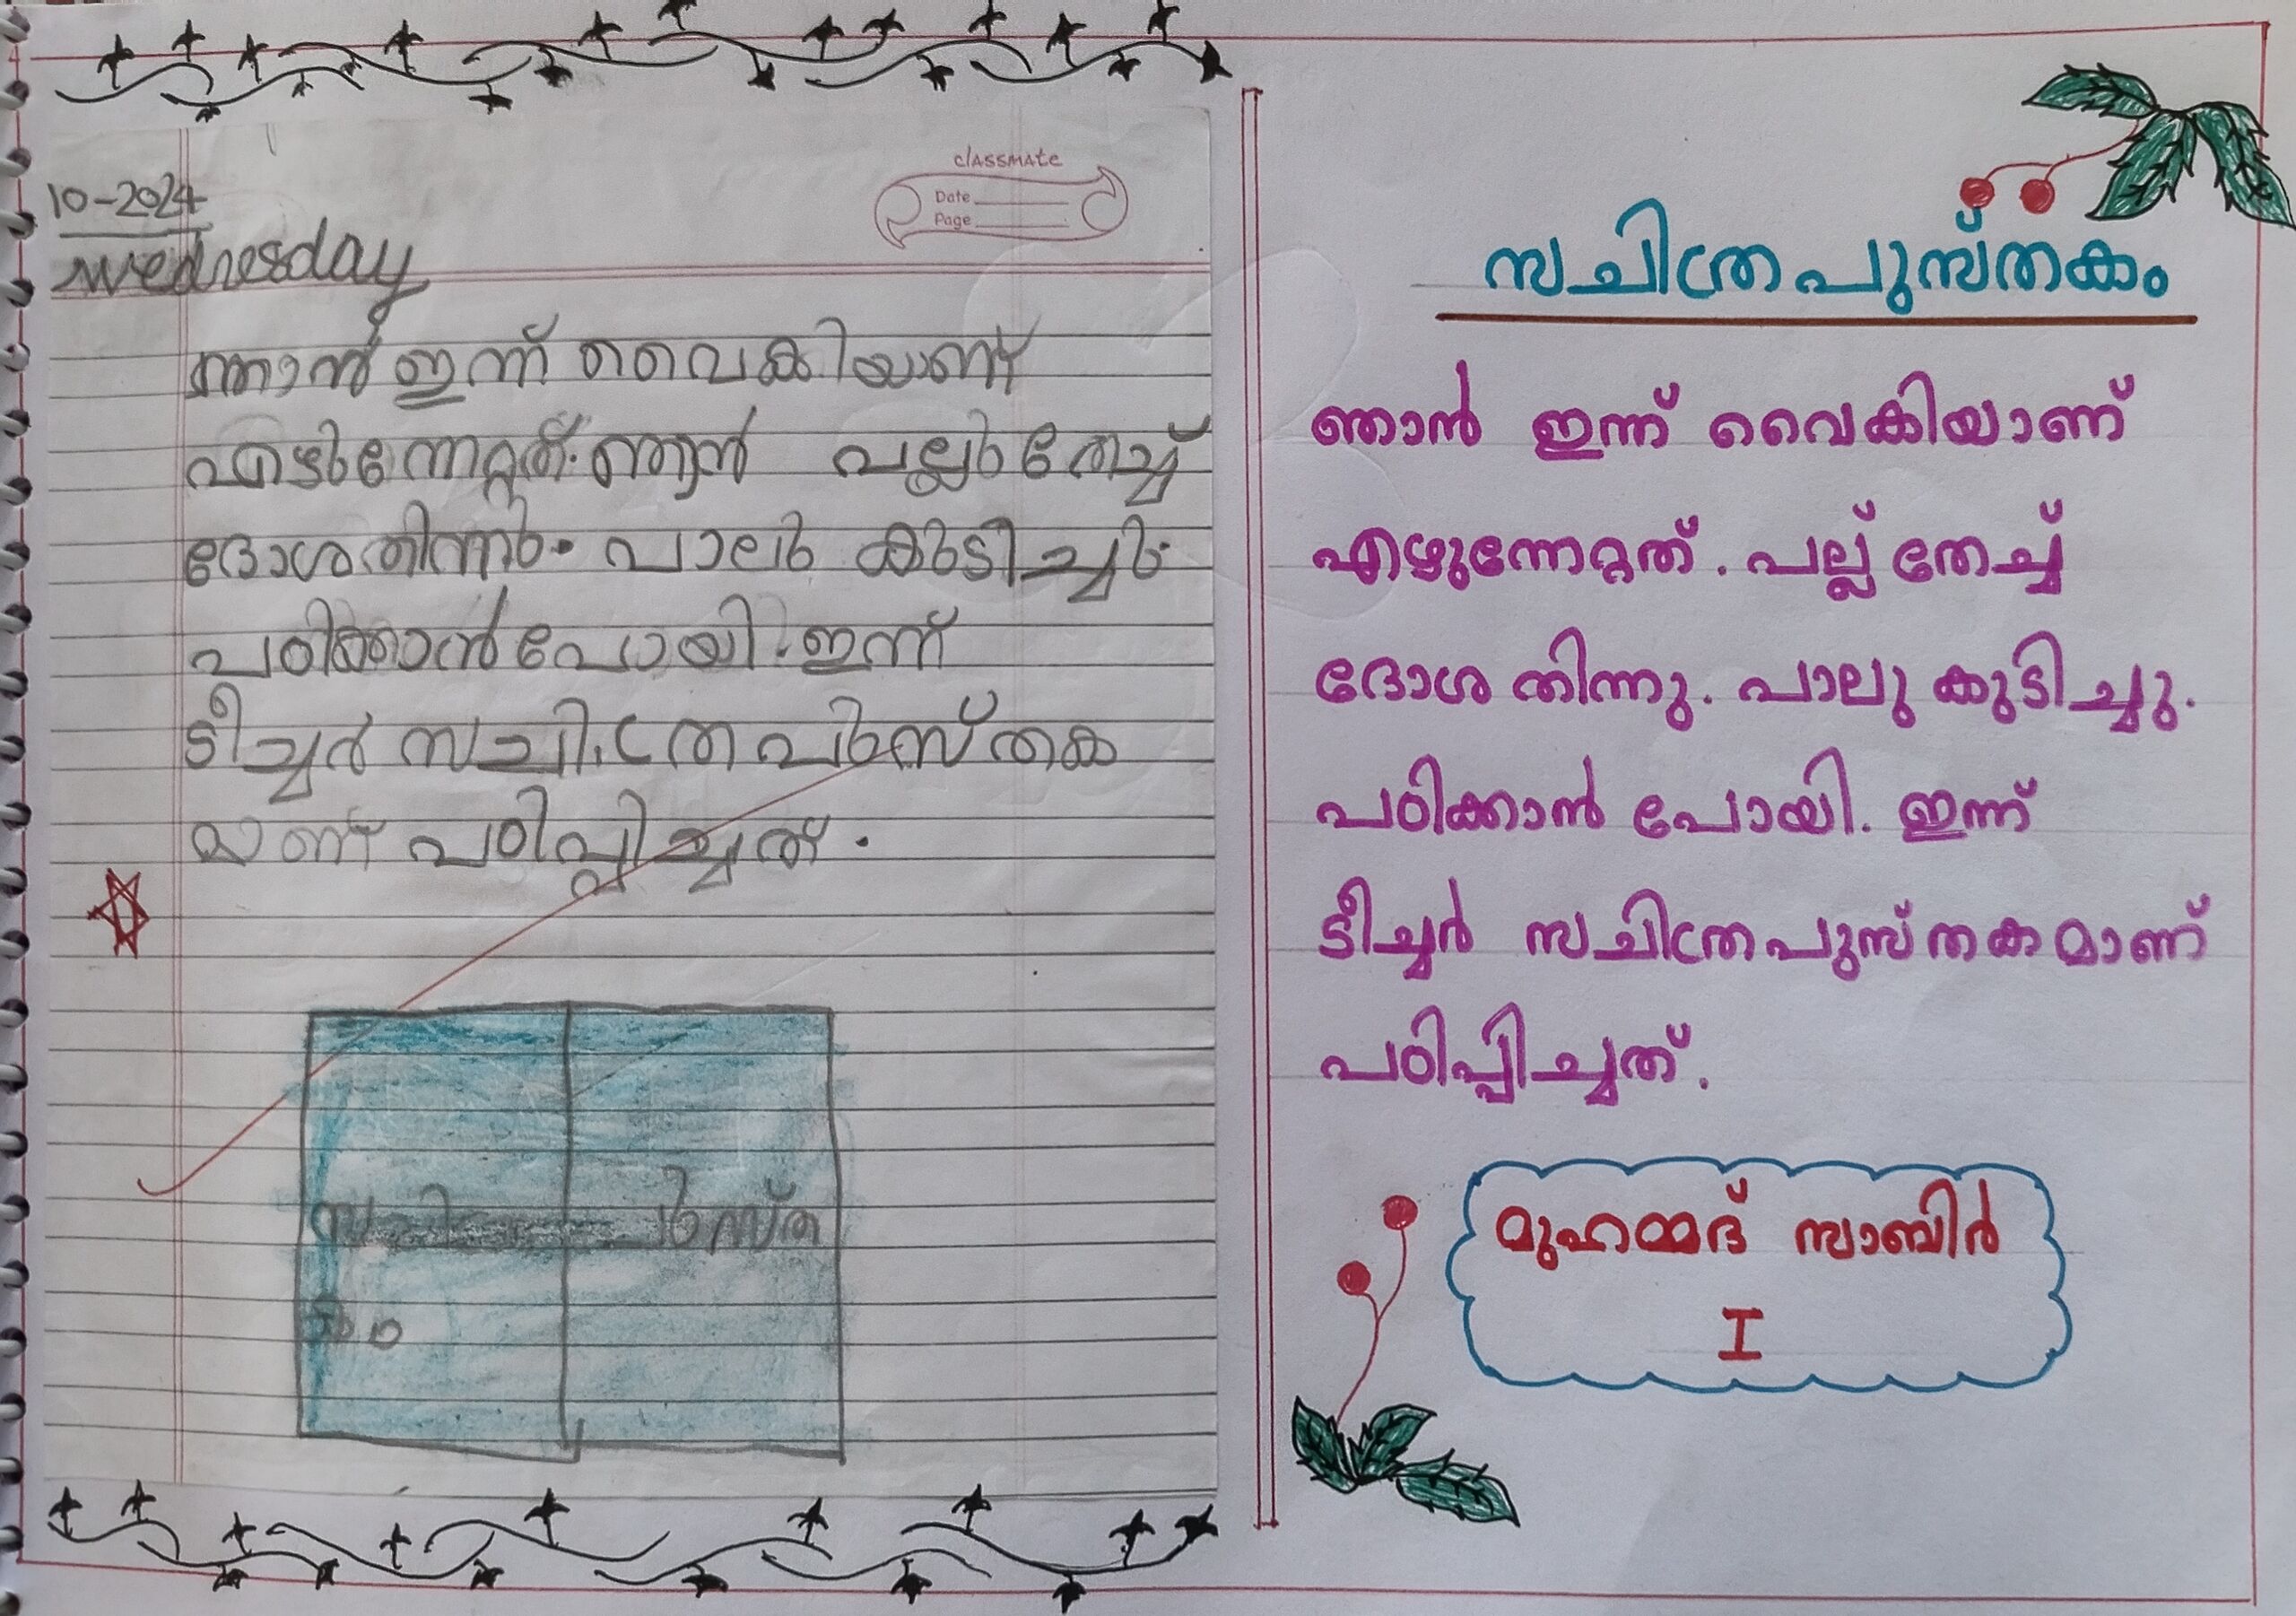 10-2024
Wednesday
classmate
Date
Page
ഞാൻ ഇന്ന് വൈകിയാണ്
എഴുന്നേറ്റത്. ഞാൻ പല്ലു തേച്ച്
ദോശ തിന്നു. പാലു കുടിച്ചു.
പഠിക്കാൻ പോയി. ഇന്ന്
ടീച്ചർ സചിത്ര പുസ്തക
യണ് പഠിപ്പിച്ചത്.
സചിത്രപുസ്തകം
ഞാൻ ഇന്ന് വൈകിയാണ്
എഴുന്നേറ്റത്. പല്ല് തേച്ച്
ദോശ തിന്നു. പാലു കുടിച്ചു.
പഠിക്കാൻ പോയി. ഇന്ന്
ടീച്ചർ സചിത്രപുസ്തകമാണ്
പഠിപ്പിച്ചത്.
മുഹമ്മദ് സാബിർ
I